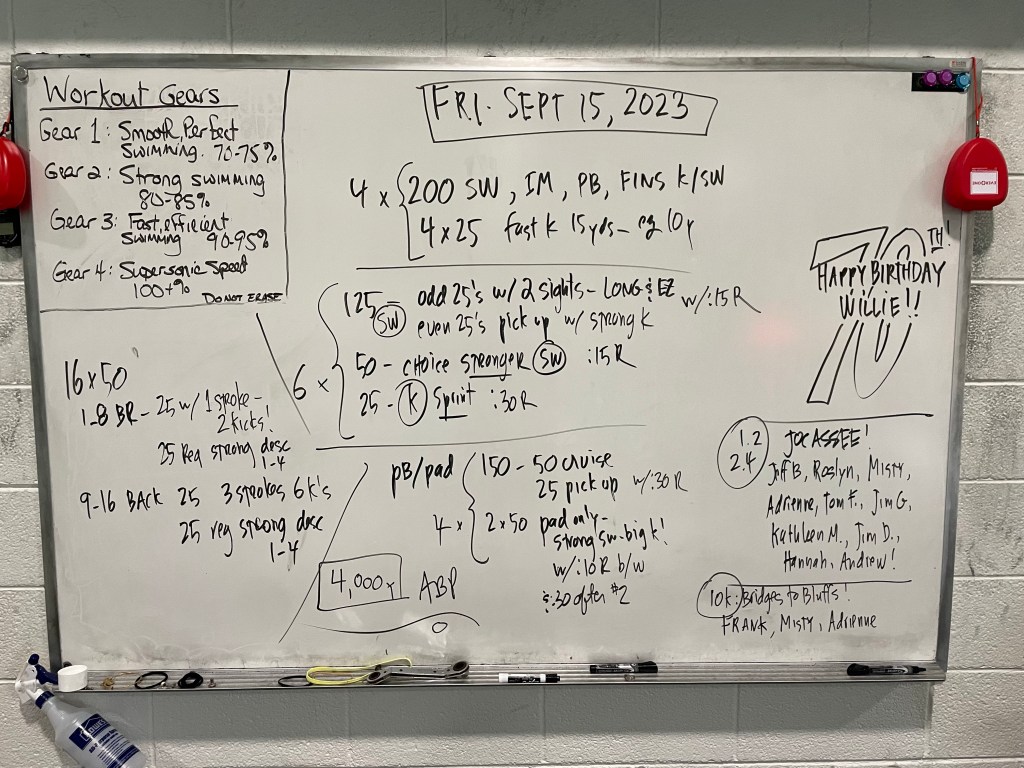 Workout Gears
Gear 1: Smooth, Perfect
SWIMMING. 70-75%
Gear 2: Strong SWIMMING
80-85%
Gear 3: Fast, efficient
SWIMMING 90-95%
Gear 4: Supersonic Speed
100+%
DO NOT ERASE
FRI. SEPT 15, 2023
4 x { 200 SW, IM, PB, FINS K/SW
4 x 25 fast K 15yds - ez 10y
6 x { 125 SW - odd 25's w/ 2 sights - LONG & EZ w/:15R
even 25's pick up w/ strong K
50 - choice stronger SW :15R
25 - K Sprint :30R
16 x 50
1-8 BR - 25 w/ 1 stroke -
2 kicks!
25 Reg strong desc
1-4
9-16 BACK 25 3 strokes 6 k's
25 reg strong desc
1-4
PB/pad
4 x { 150 - 50 cruise
25 pick up w/:30R
2 x 50 pad only -
strong sw - big k!
w/:10R b/w
& :30 after #2
4,000y ABP
70TH!
HAPPY BIRTHDAY
WILLIE!!
1.2
2.4
JOCASSEE!
Jeff B, Roslyn, Misty,
Adrienne, Tom F., Jim G,
Kathleen M., Jim D.,
Hannah, Andrew!
10k: Bridges to Bluffs!
FRANK, Misty, Adrienne